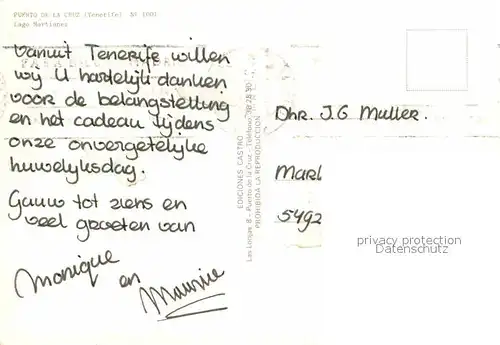 PUERTO DE LA CRUZ (Tenerife) Nº 1001
Lago Martianez
Vanuit Tenerife willen
wij U hartelijk danken
voor de belangstelling
en het cadeau tijdens
onze onvergetelijke
huwelijksdag.
Gauw tot ziens en
veel groeten van
Monique
en
Maurice
EDICIONES CASTRO
Las Lonjas, 8 - Puerto de la Cruz - Teléfono
PROHIBIDA LA REPRODUCCION
Dhr. J.G. Muller.
Marl
5492
privacy protection
Datenschutz